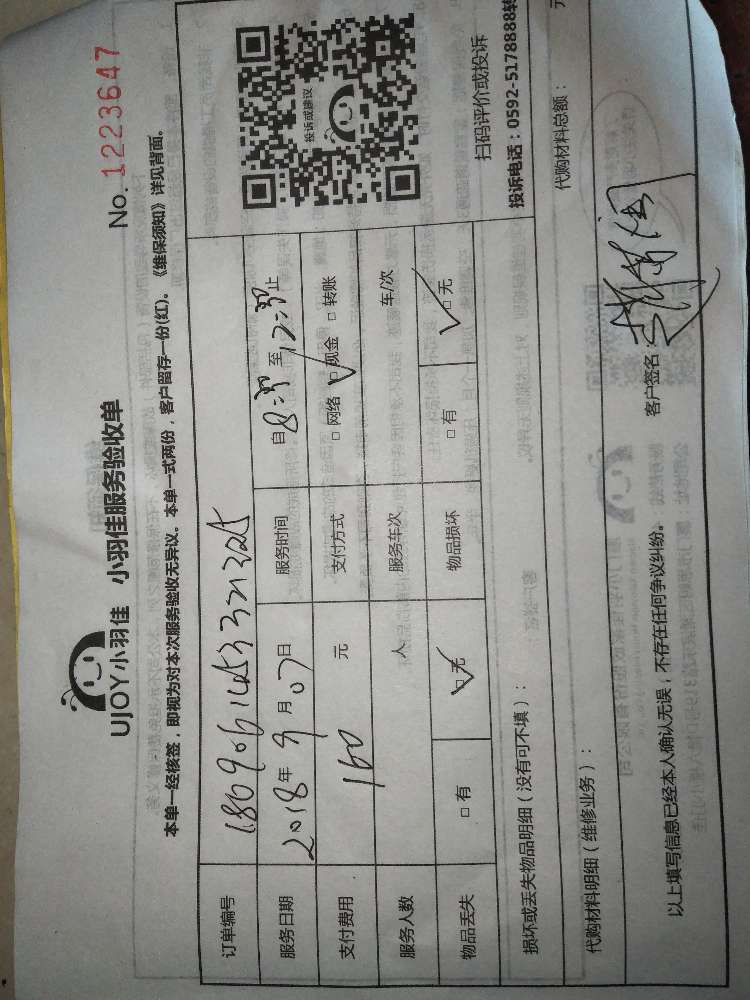 UJOY小羽佳 小羽佳服务验收单
No. 1223647
本单一经核签，即视为对本次服务验收无异议。本单一式两份，客户留存一份(红)。《维保须知》详见背面。
订单编号
服务日期 2018年 9月07日 服务时间 自8:30至12:30止
支付费用 160 元 支付方式 □网络 ☑现金 □转账
服务人数 人 服务车次 车/次
物品丢失 □有 ☑无 物品损坏 □有 ☑无
投诉或建议
扫码评价或投诉
投诉电话：0592-5178888转
损坏或丢失物品明细（没有可不填）：
代购材料明细（维修业务）： 代购材料总额： 元
以上填写信息已经本人确认无误，不存在任何争议纠纷。 客户签名：